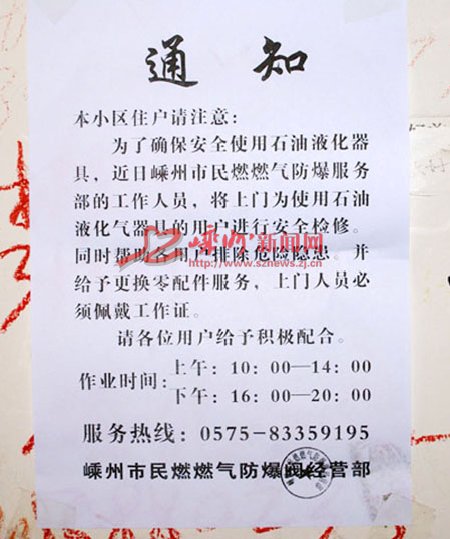 通知
本小区住户请注意：
为了确保安全使用石油液化器
具，近日嵊州市民燃燃气防爆服务
部的工作人员，将上门为使用石油
液化气器具的用户进行安全检修。
同时帮助各用户排除危险隐患。并
给予更换零配件服务，上门人员必
须佩戴工作证。
请各位用户给予积极配合。
作业时间：
上午：10：00—14：00
下午：16：00—20：00
服务热线：0575-83359195
嵊州市民燃燃气防爆阀经营部
嵊州新闻网
http://www.sznews.zj.cn